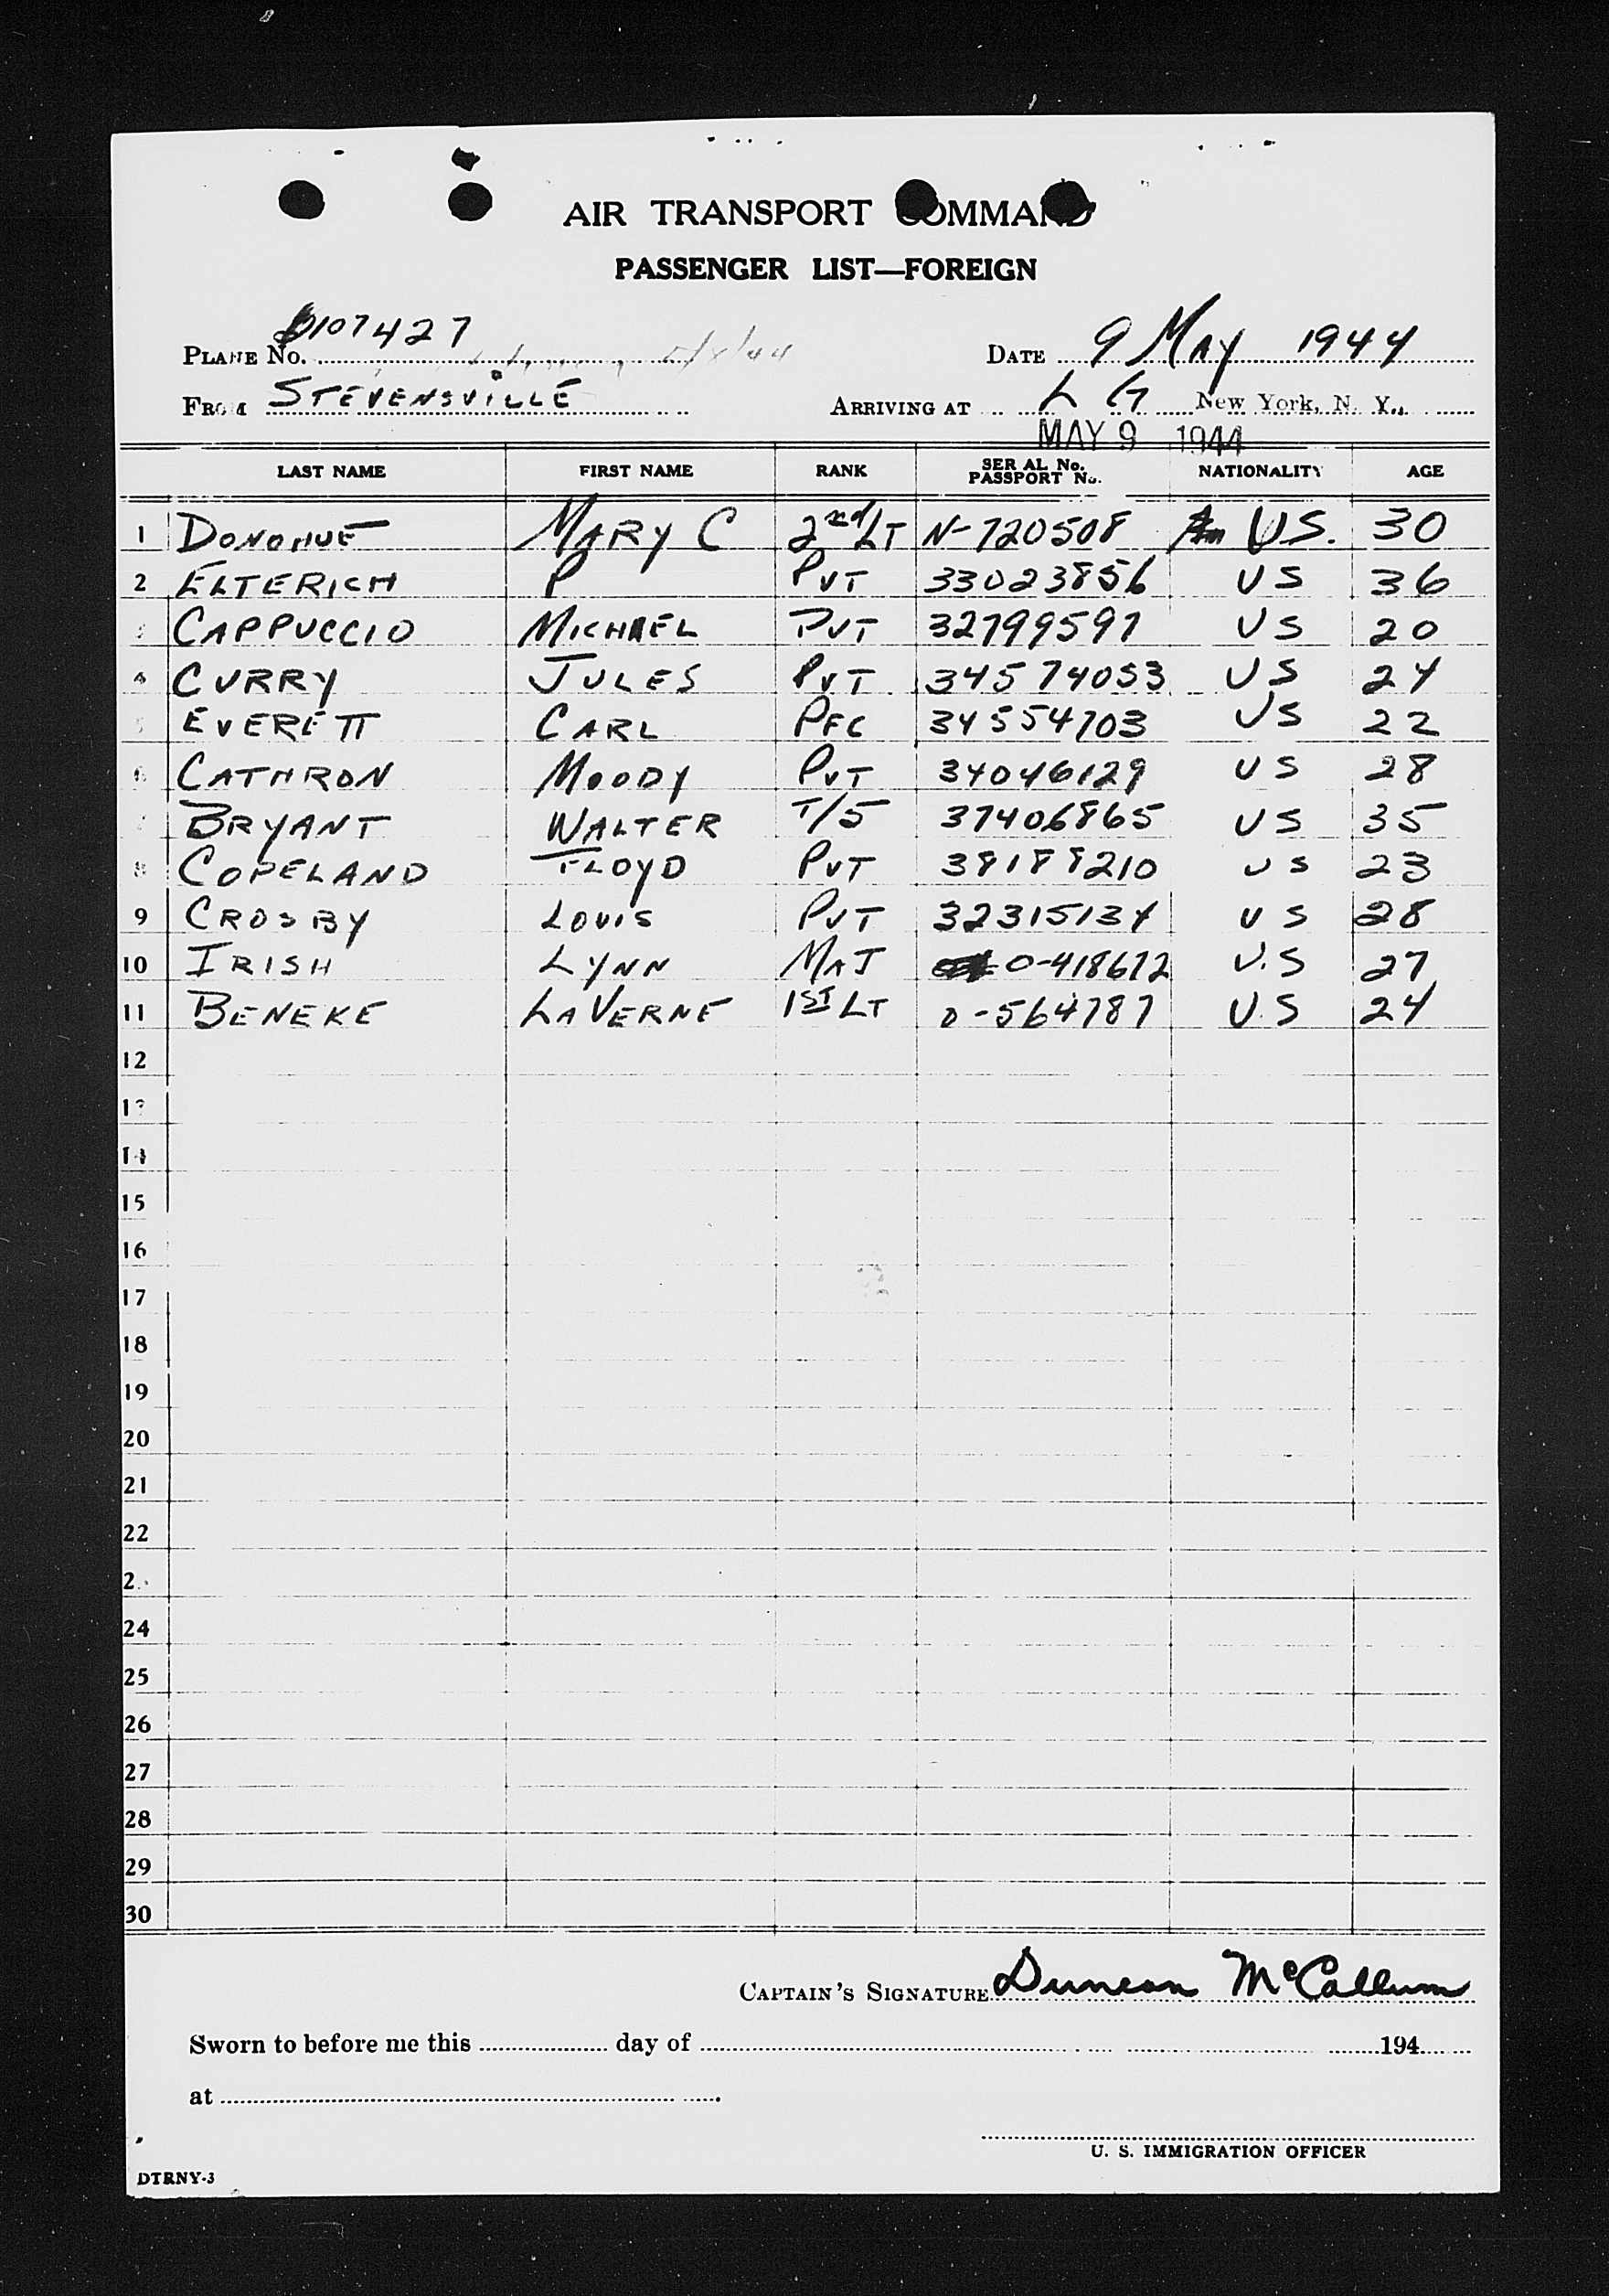 AIR TRANSPORT COMMAND
PASSENGER LIST—FOREIGN
PLANE No. 107427 5/8/44 DATE 9 MAY 1944
FROM STEVENSVILLE ARRIVING AT L G New York, N. Y.,
MAY 9 1944
LAST NAME FIRST NAME RANK SERIAL No. PASSPORT No. NATIONALITY AGE
1 DONOHUE MARY C 2nd LT N-720508 US. 30
2 ELTERICH P PVT 33023856 US 36
3 CAPPUCCIO MICHAEL PVT 32799597 US 20
4 CURRY JULES PVT 34574053 US 24
5 EVERETT CARL PFC 34554703 US 22
6 CATHRON MOODY PVT 34046129 US 28
7 BRYANT WALTER T/5 37406865 US 35
8 COPELAND FLOYD PVT 38188210 US 23
9 CROSBY LOUIS PVT 32315134 US 28
10 IRISH LYNN MAJ O-418672 U.S 27
11 BENEKE LAVERNE 1ST LT O-564787 U.S 24
12
13
14
15
16
17
18
19
20
21
22
2
24
25
26
27
28
29
30
CAPTAIN'S SIGNATURE Duncan McCallum
Sworn to before me this day of 194
at
U. S. IMMIGRATION OFFICER
DTRNY-3